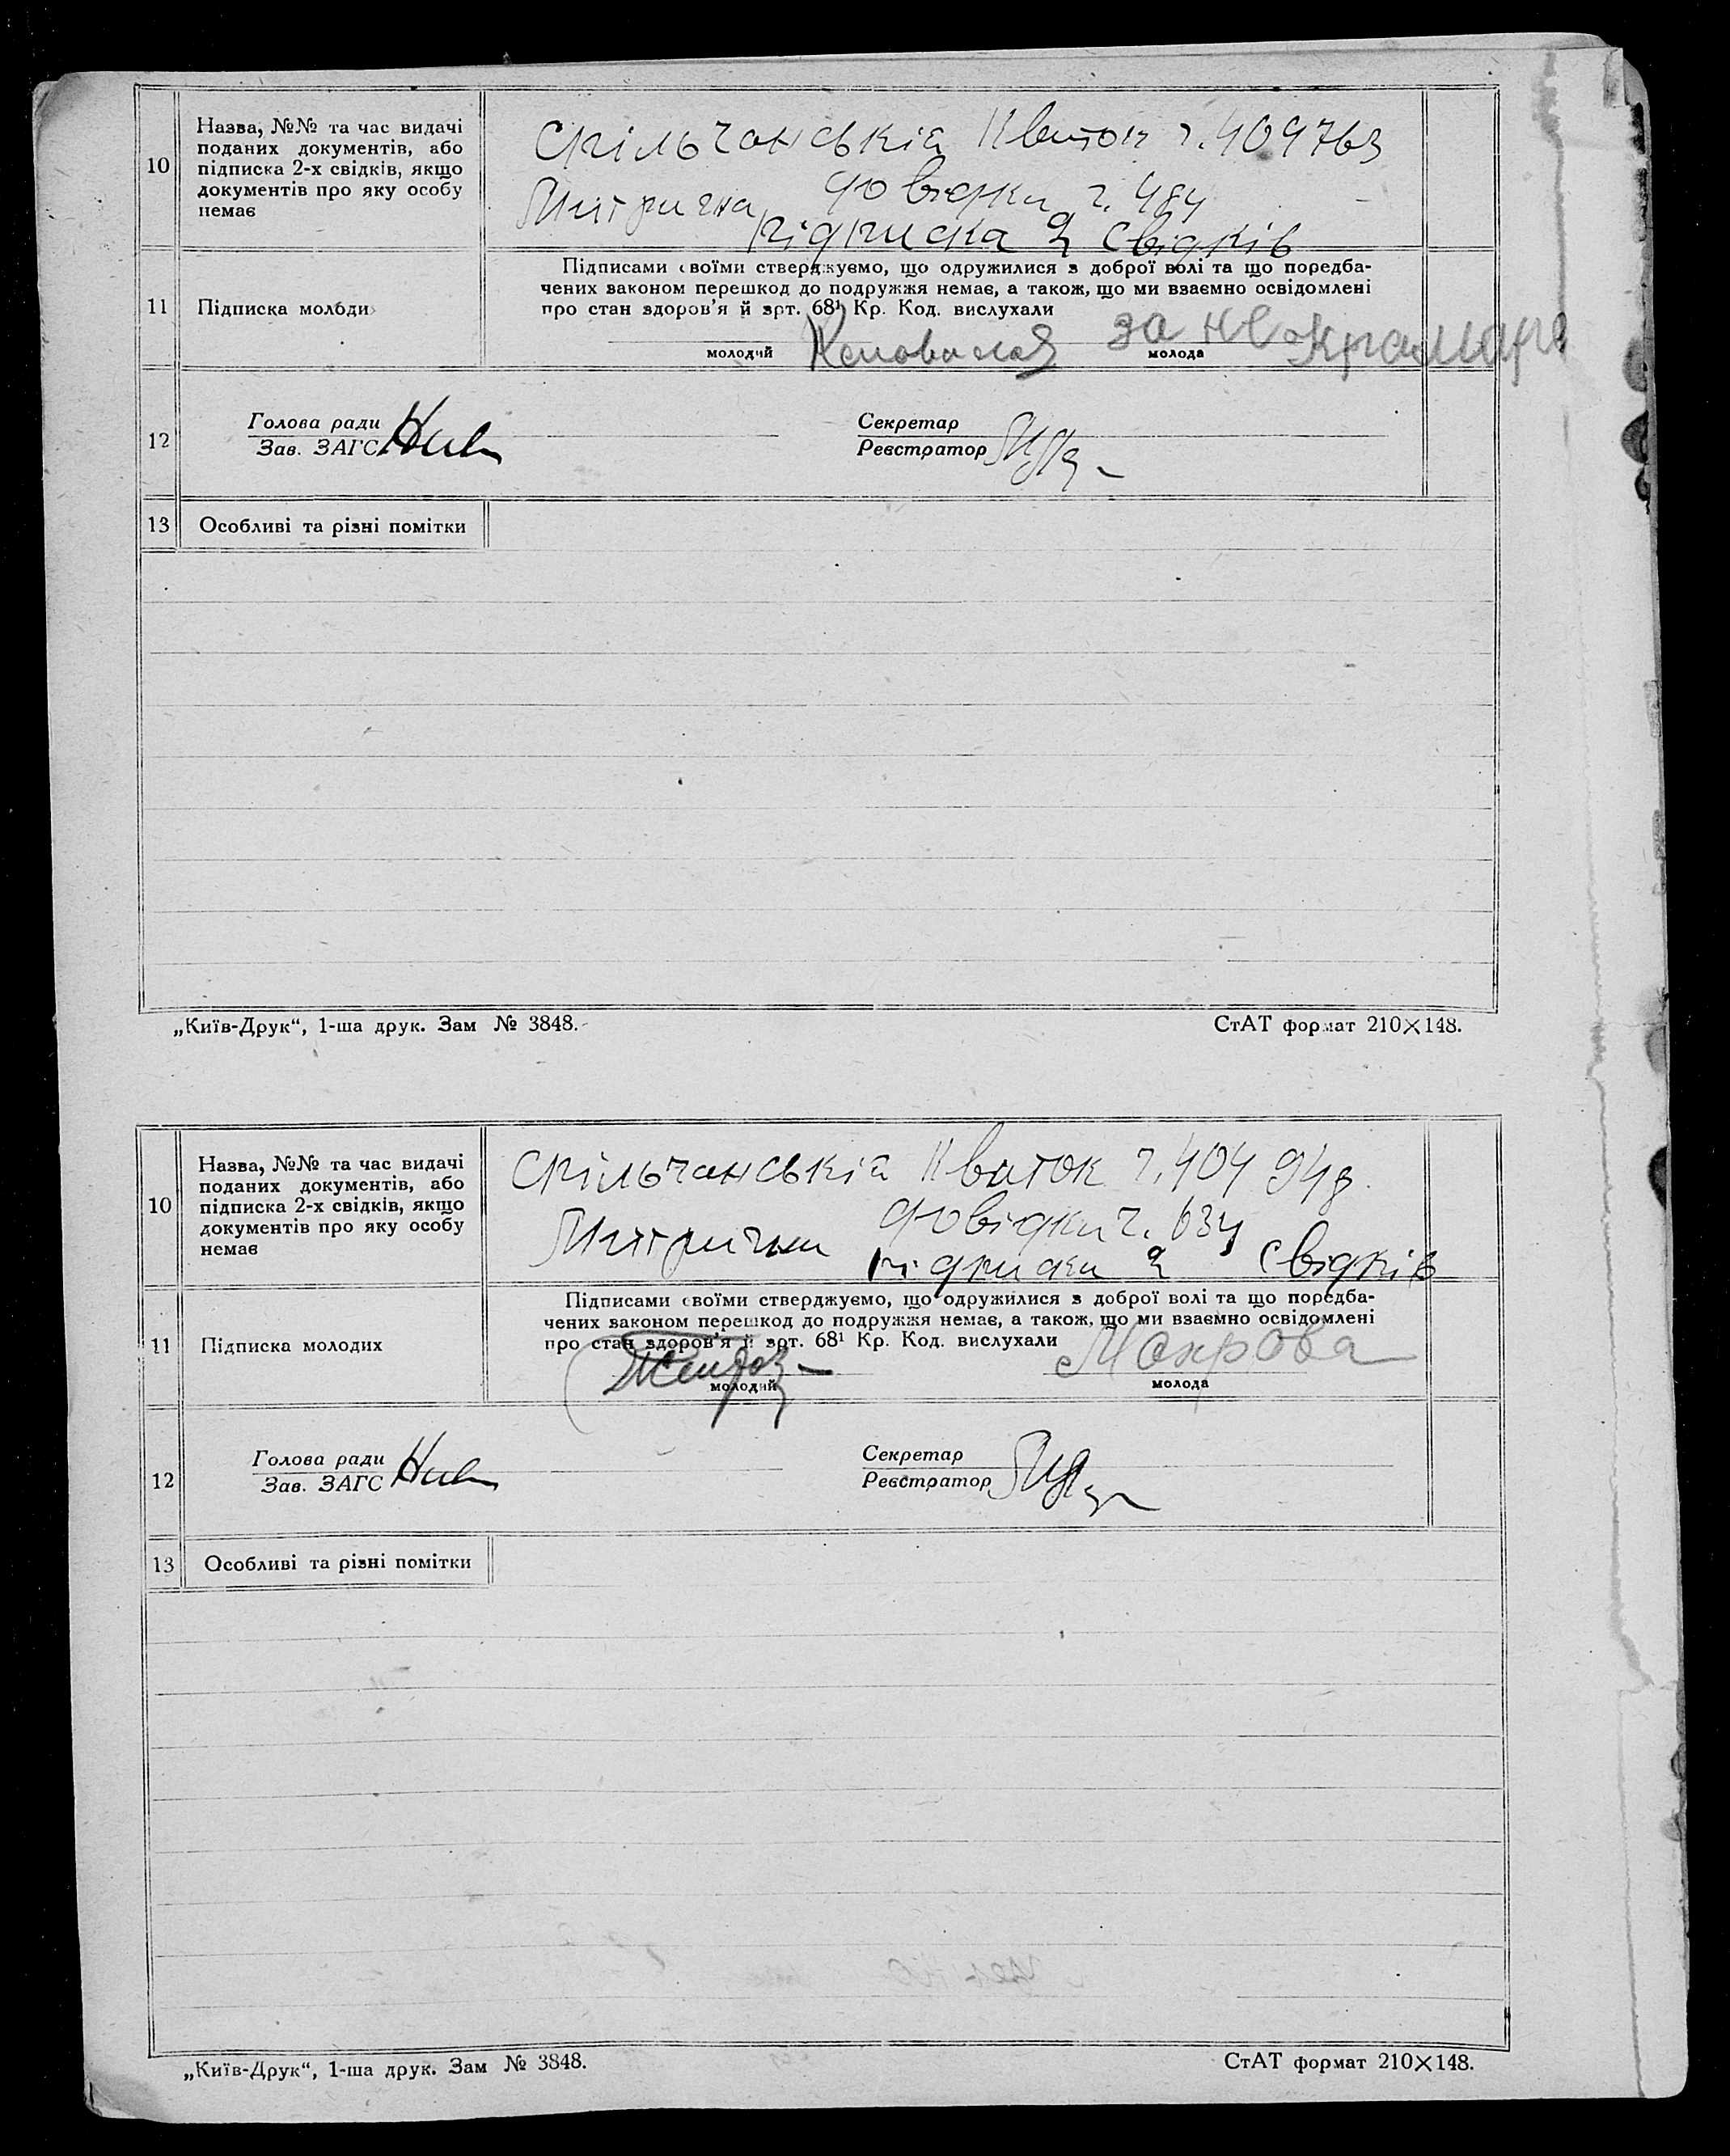 10 Назва, №№ та час видачі
поданих документів, або
підписка 2-х свідків, якщо
документів про яку особу
немає
Спільчанській Квиток ч. 409763
довідки ч. 484
Митрична
підписка 2 свідків
11 Підписка молоди
Підписами своїми стверджуємо, що одружилися з доброї волі та що передба-
чених законом перешкод до подружжя немає, а також, що ми взаємно освідомлені
про стан здоров'я й арт. 68¹ Кр. Код. вислухали
за не
молодий молода
12 Голова ради Секретар
Зав. ЗАГС Реєстратор
13 Особливі та різні помітки
„Київ-Друк“, 1-ша друк. Зам № 3848. СтАТ формат 210×148.
10 Назва, №№ та час видачі
поданих документів, або
підписка 2-х свідків, якщо
документів про яку особу
немає
Спільчанській Квиток ч. 404 948
довідки ч. 634
Митрични
підписки 2 свідків
11 Підписка молодих
Підписами своїми стверджуємо, що одружилися з доброї волі та що передба-
чених законом перешкод до подружжя немає, а також, що ми взаємно освідомлені
про стан здоров'я й арт. 68¹ Кр. Код. вислухали
Мокрова
молодий молода
12 Голова ради Секретар
Зав. ЗАГС Реєстратор
13 Особливі та різні помітки
„Київ-Друк“, 1-ша друк. Зам № 3848. СтАТ формат 210×148.